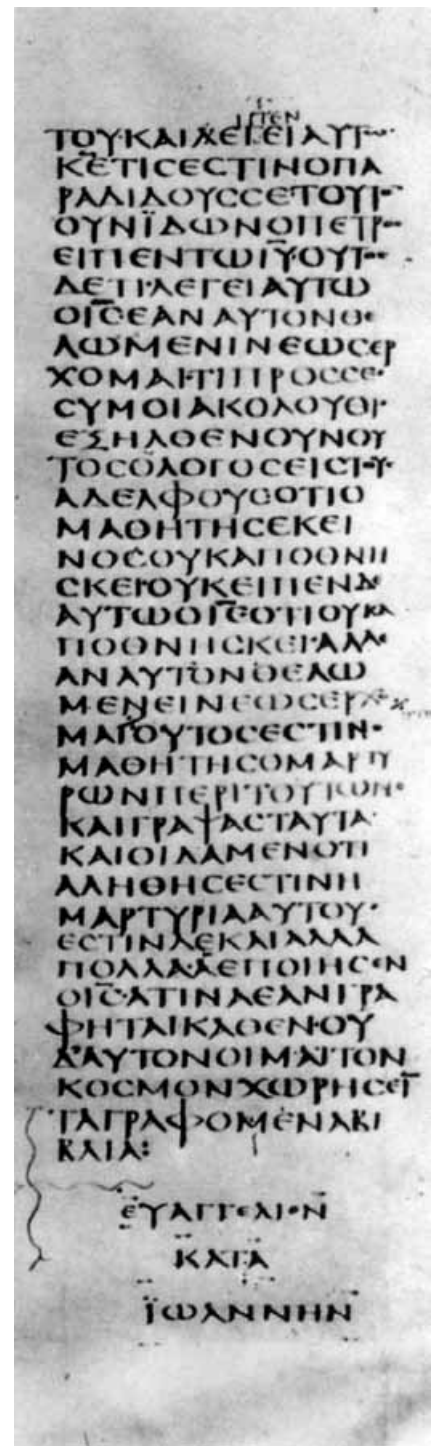 ΕΙΠΕΝ
ΤΟΥ·ΚΑΙΛΕΓΕΙΑΥΤΩ
ΚΕΤΙCΕCΤΙΝΟΠΑ
ΡΑΔΙΔΟΥCCΕΤΟΥΤΟ
ΟΥΝΪΔΩΝΟΠΕΤΡΟ
ΕΙΠΕΝΤΩΙ̅Υ̅·ΟΥΤΟ
ΔΕΤΙ·ΛΕΓΕΙΑΥΤΩ
ΟΙ̅C̅ΕΑΝΑΥΤΟΝΘΕ
ΛΩΜΕΝΙΝΕΩCΕΡ
ΧΟΜΑΙ·ΤΙΠΡΟCCΕ·
CΥΜΟΙΑΚΟΛΟΥΘΙ
ΕΞΗΛΘΕΝΟΥΝΟΥ
ΤΟCΟΛΟΓΟCΕΙCΤΟΥ
ΑΔΕΛΦΟΥCΟΤΙΟ
ΜΑΘΗΤΗCΕΚΕΙ
ΝΟCΟΥΚΑΠΟΘΝΗ
CΚΕΙ·ΟΥΚΕΙΠΕΝΔΕ
ΑΥΤΩΟΙ̅C̅ΟΤΙΟΥΚΑ
ΠΟΘΝΗCΚΕΙ·ΑΛΛ
ΑΝΑΥΤΟΝΘΕΛΩ
ΜΕΝΕΙΝΕΩCΕΡΧΟ
ΜΑΙΟΥΤΟCΕCΤΙΝΟ
ΜΑΘΗΤΗCΟΜΑΡΤΥ
ΡΩΝΠΕΡΙΤΟΥΤΩΝ·
ΚΑΙΓΡΑΨΑCΤΑΥΤΑ
ΚΑΙΟΙΔΑΜΕΝΟΤΙ
ΑΛΗΘΗCΕCΤΙΝΗ
ΜΑΡΤΥΡΙΑΑΥΤΟΥ·
ΕCΤΙΝΔΕΚΑΙΑΛΛΑ
ΠΟΛΛΑ·ΑΕΠΟΙΗCΕΝ
ΟΙ̅C̅·ΑΤΙΝΑΕΑΝΓΡΑ
ΦΗΤΑΙΚΑΘΕΝ·ΟΥ
ΔΑΥΤΟΝΟΙΜΑΙΤΟΝ
ΚΟCΜΟΝΧΩΡΗCΕΙ
ΤΑΓΡΑΦΟΜΕΝΑΒΙ
ΒΛΙΑ:
ΕΥΑΓΓΕΛΙΟΝ
ΚΑΤΑ
ΪΩΑΝΝΗΝ